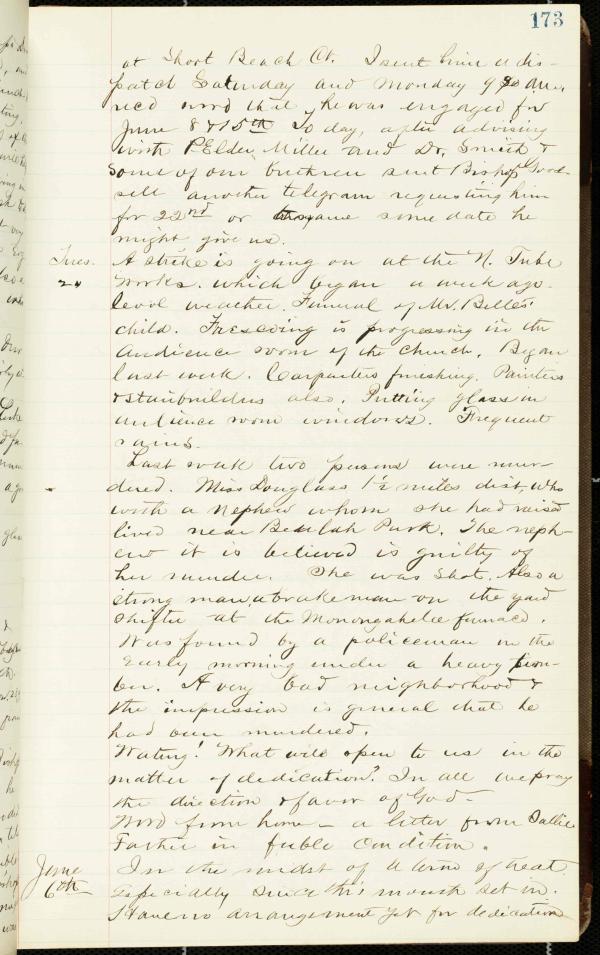 173
at Short Beach Ct. I sent him a dis-
patch Saturday and Monday 9 30 AM
recd word that he was engaged for
June 8 & 15th To day, after advising
with P Elder Miller and Dr. Smith &
some of our brethren sent Bishop Good-
sell another telegram requesting him
for 22nd or name some date he
might give us.
Tues. A strike is going on at the N. Tube
24 Works. which began a week ago.
Cool weather. Funeral of Mr. Belles'
child. Frescoing is progressing in the
Audience room of the church. Began
last week. Carpenters finishing. Painters
& stairbuilders also. Putting glass in
audience room windows. Frequent
rains.
Last week two persons were mur-
dered. Miss Douglass 1½ miles dist, who
with a nephew whom she had raised
lived near Beulah Park. The neph-
ew it is believed is guilty of
her murder. She was shot. Also a
strong man, a brakeman on the yard
shifter at the Monongahela furnace.
Was found by a policeman in the
early morning under a heavy
A very bad neighborhood &
the impression is general that he
had been murdered.
Waiting! What will open to us in the
matter of dedication? In all we pray
the direction & favor of God-
Word from home - a letter from Sallie
Father in feeble condition.
June In the midst of a term of heat
6th especially since this month set in.
Have no arrangement yet for dedication